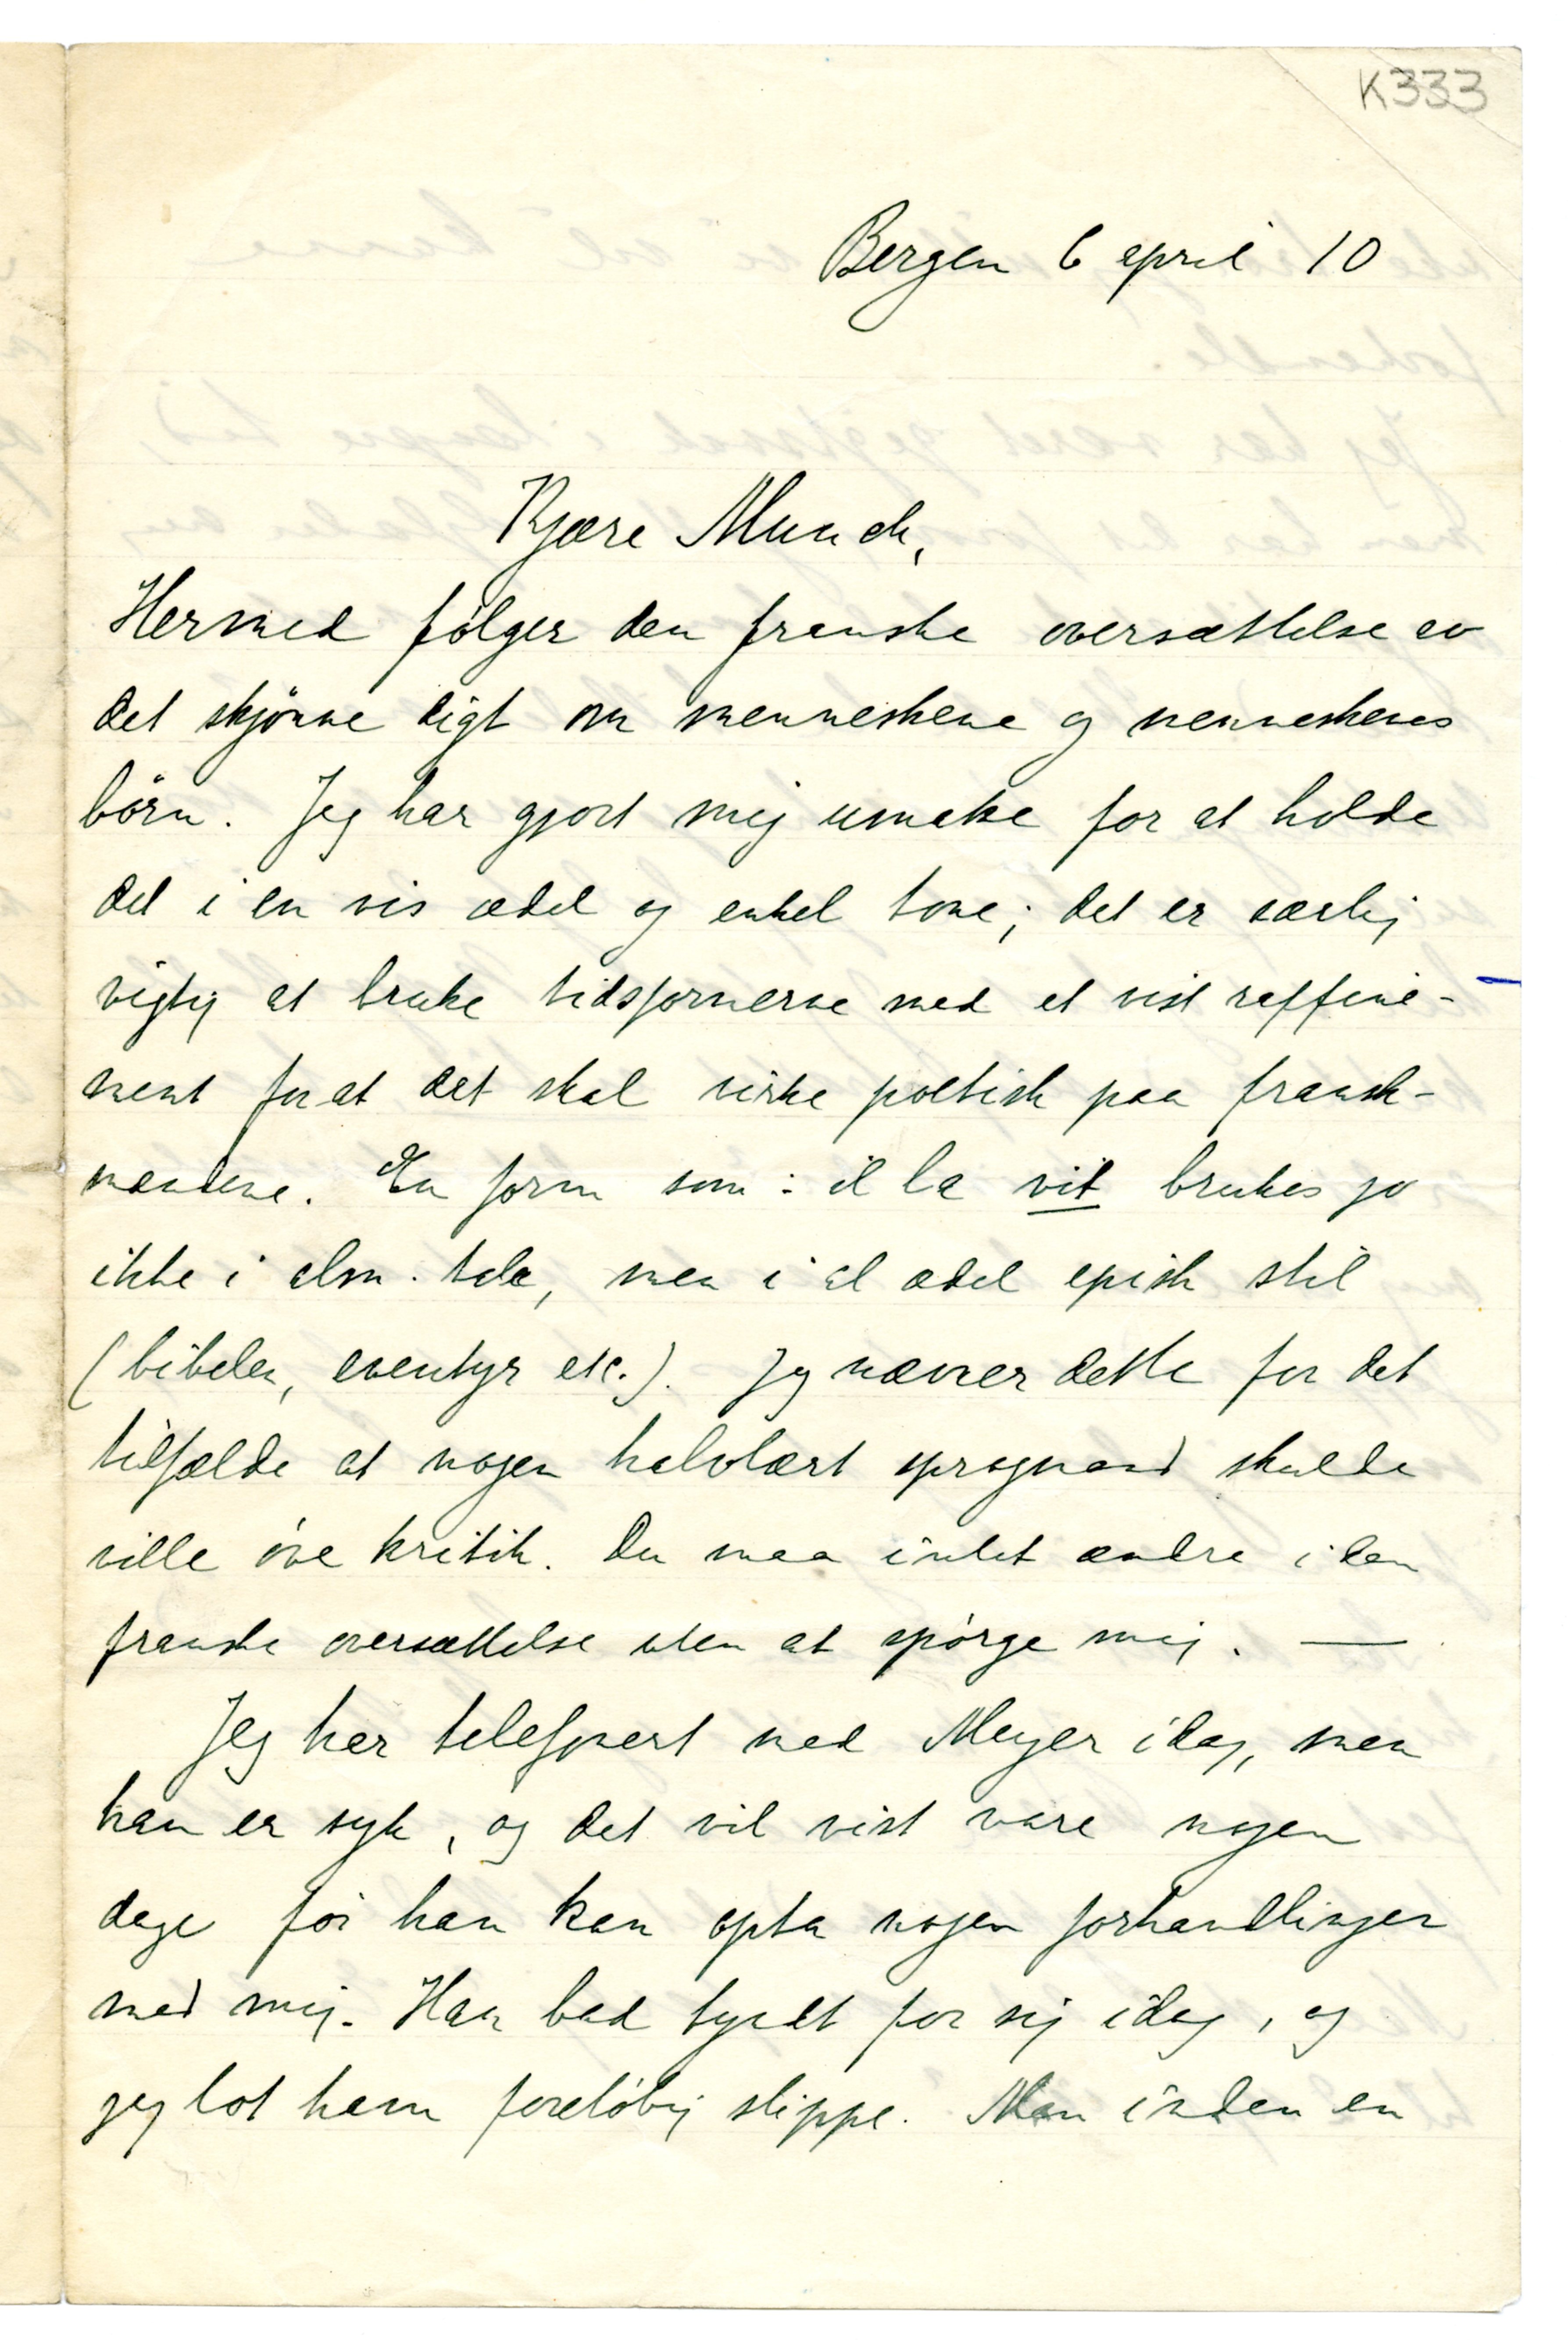 K333
Bergen 6 april 10
Kjære Munch,
Hermed følger den franske oversættelse av
det skjønne digt om menneskene og menneskenes
børn. Jeg har gjort mig umake for at holde
det i en vis ædel og enkel tone; det er særlig
vigtig at bruke tidsformerne med et vist raffine-
ment for at det skal virke poetisk paa fransk-
mændene. En form som: il la vit brukes jo
ikke i alm. tale, men i al ædel episk stil
(bibelen, eventyr etc.). Jeg nævner dette for det
tilfælde at nogen halvlært sprogmand skulde
ville øve kritik. Du maa intet ændre i den
franske oversættelse uten at spørge mig. —
Jeg har telefonert med Meyer idag, men
han er syk, og det vil vist vare nogen
dage før han kan opta nogen forhandlinger
med mig. Han bad tyndt for sig idag, og
jeg lot ham foreløbig slippe. Men inden en